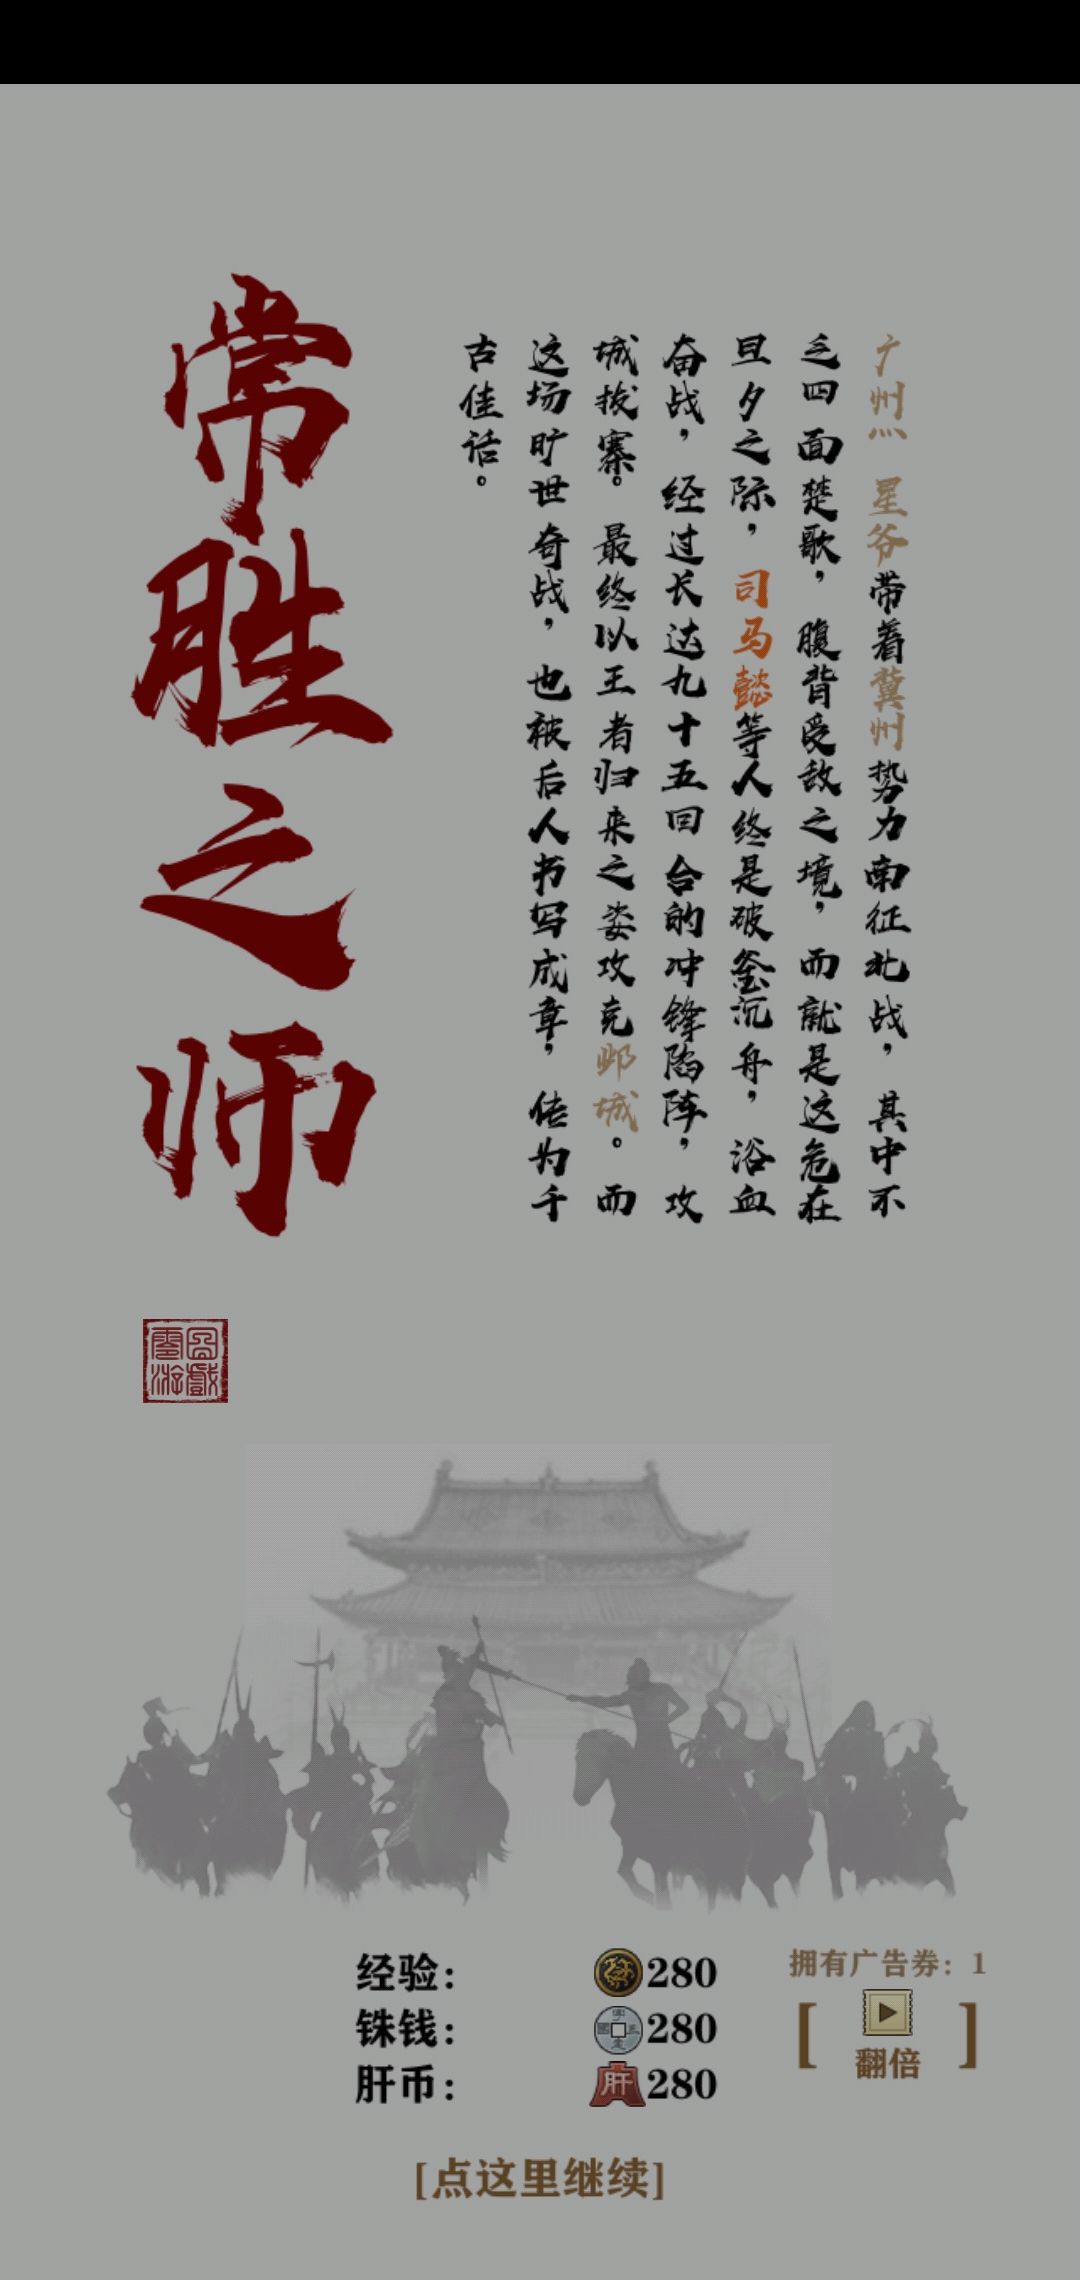 广州灬 星爷带着冀州势力南征北战，其中不
乏四面楚歌，腹背受敌之境，而就是这危在
旦夕之际，司马懿等人终是破釜沉舟，浴血
奋战，经过长达九十五回合的冲锋陷阵，攻
城拔寨。最终以王者归来之姿攻克邺城。而
这场旷世奇战，也被后人书写成章，传为千
古佳话。
常胜之师
经验： 280
铢钱： 280
肝币： 肝 280
拥有广告券：1
[ 翻倍 ]
[点这里继续]